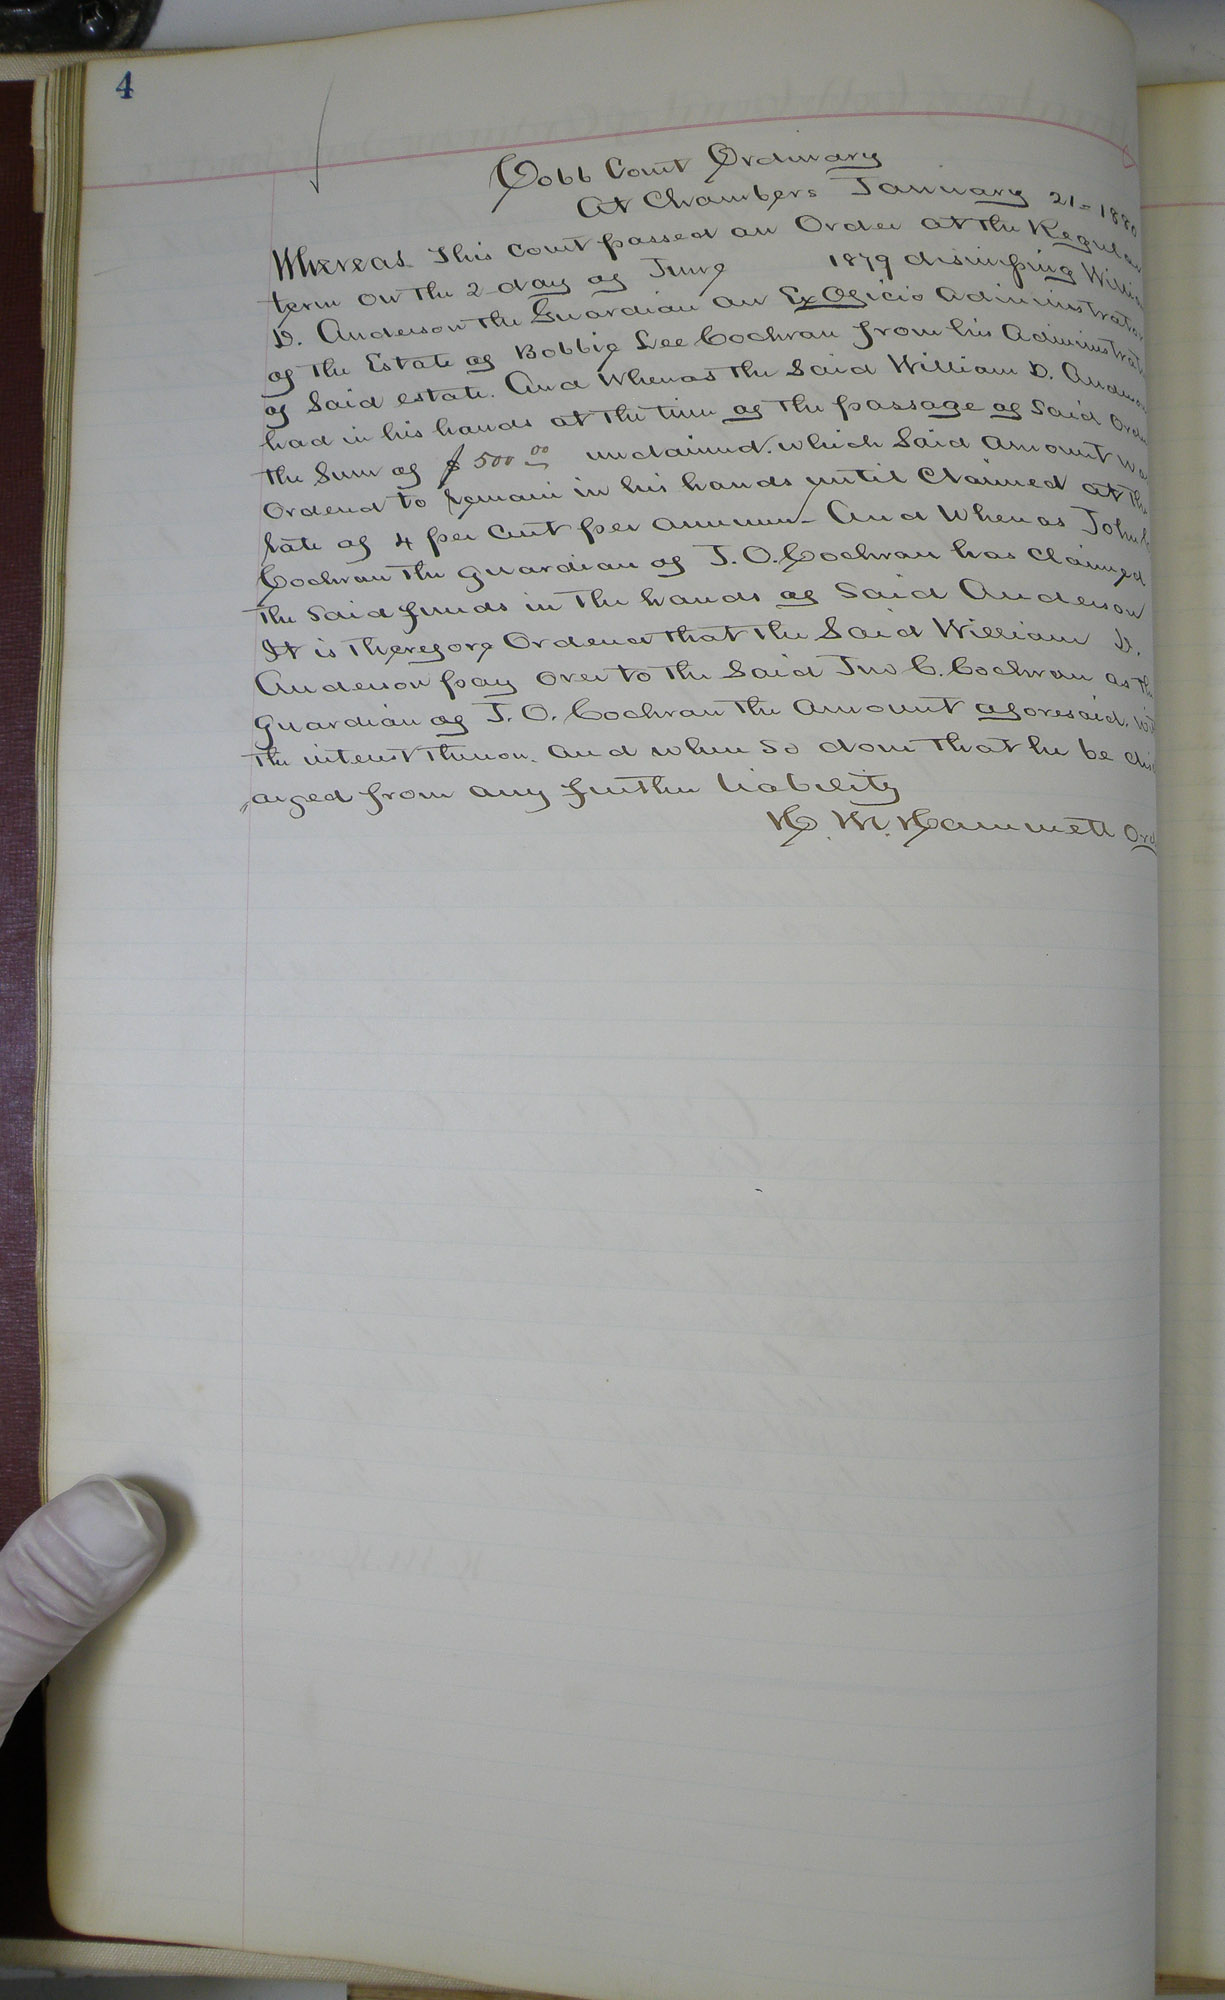 4
Cobb Court Ordinary
At Chambers January 21 = 1880
Whereas This Court passed an Order at the Regular
term on the 2 day of June 1879 dismissing William
D. Anderson the Guardian an Ex Officio Administrator
of the Estate of Bobbie Lee Cochran from his Administrat
of Said estate. And Whereas the Said William D. Anderson
had in his hands at the time of the passage of Said Order
the Sum of $ 500 00 unclaimed. which Said Amount was
Ordered to remain in his hands until Claimed at the
rate of 4 per cent per annum - And Whereas John C
Cochran the guardian of J. O. Cochran has Claimed
the Said funds in the hands of Said Anderson
It is Therefore Ordered that the Said William D.
Anderson pay over to the Said Jno C. Cochran as the
guardian of J. O. Cochran the Amount aforesaid, with
the interest thereon. and when so done that he be disch
"arged from any further liability
H. M. Hammett Ord